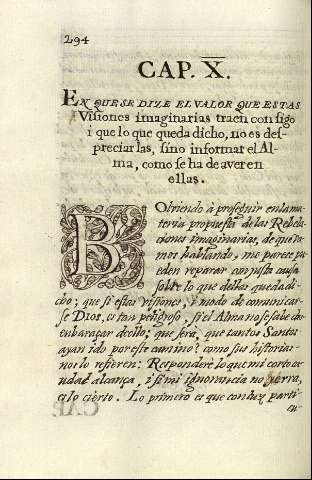 294
CAP. X.
EN QUE SE DIZE EL VALOR QUE ESTAS
Visiones imaginarias traen consigo
i que lo que queda dicho, no es des-
preciarlas, sino informar el Al-
ma, como se ha de aver en
ellas.
BOlviendo à proseguir en la ma-
teria propuesta de las Revela-
ciones imaginarias, de que va-
mos hablando, me parece pu-
eden reparar con justa causa
sobre lo que dellas queda di-
cho; que si estas visiones, i modo de comunicar-
se Dios, es tan peligroso, si el Alma no se sabe des-
embaraçar dello; que será, que tantos Santos
ayan ido por este camino? como sus historias
nos lo refieren: Responderè lo que mi corto cau-
dal alcança, i si mi ignorancia no yerra,
es lo cierto. Lo primero es que con luz parti-
cu-